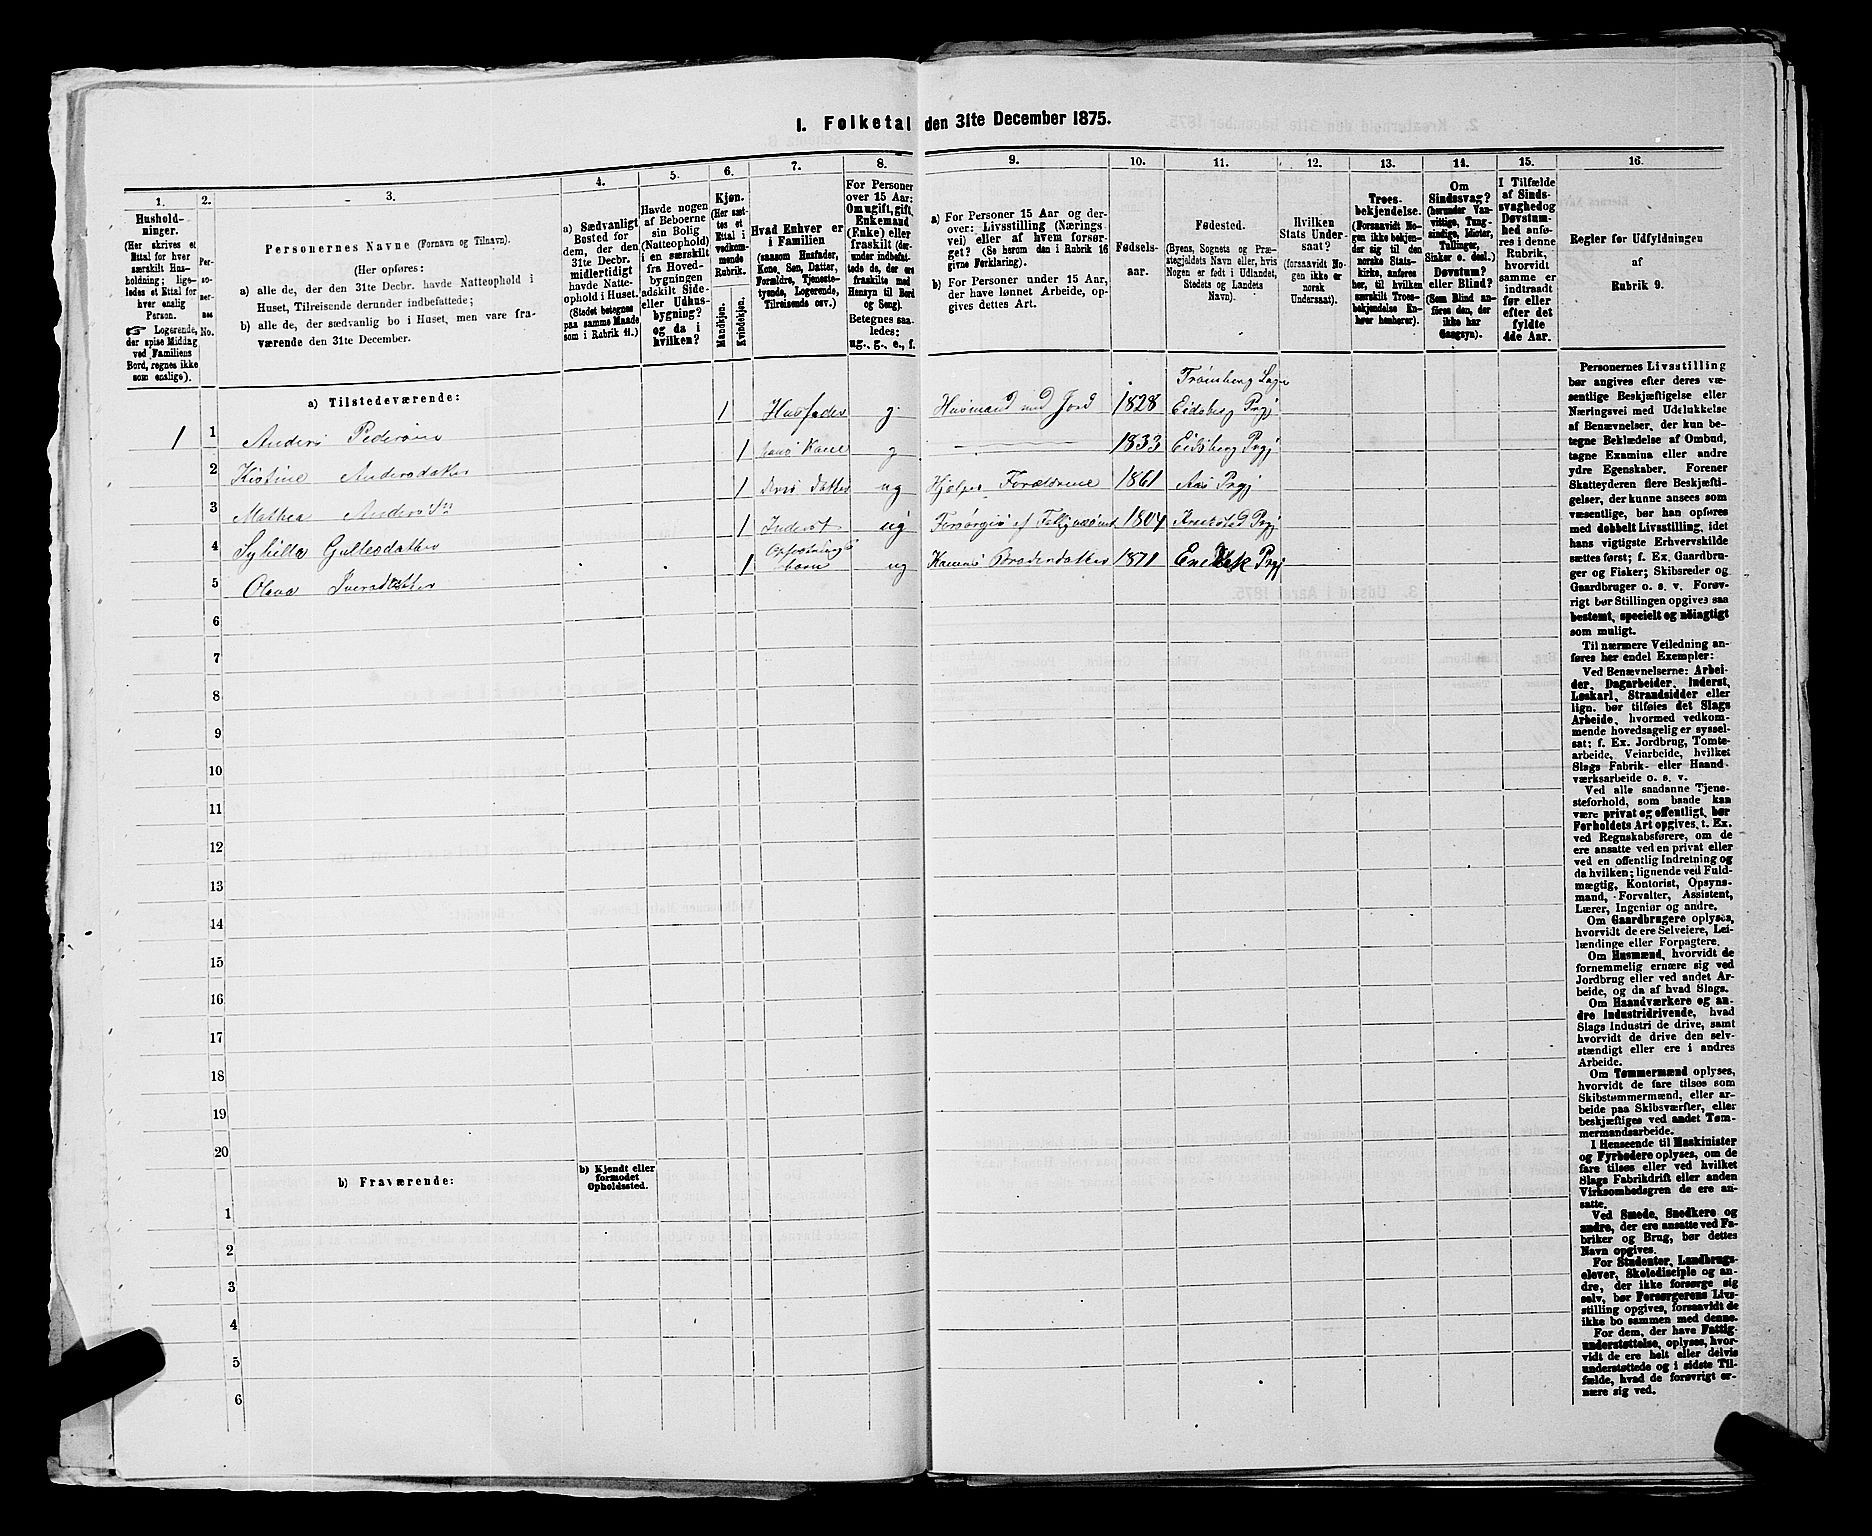 I. Folketal den 31te December 1875.
1.
Hushold-
ninger.
(Her skrives et
Ettal for hver
særskilt Hus-
holdning; lige-
ledes et Ettal for
hver enslig
Person.
☞ Logerende,
der spise Middag
ved Familiens
Bord, regnes ikke
som enslige).
2.
Per-
so-
ner-
nes
No.
3.
Personernes Navne (Fornavn og Tilnavn).
(Her opføres:
a) alle de, der den 31te Decbr. havde Natteophold i
Huset, Tilreisende derunder indbefattede;
b) alle de, der sædvanlig bo i Huset, men vare fra-
værende den 31te December.
4.
a) Sædvanligt
Bosted for
dem, der den
31te Decbr.
midlertidigt
havde Natte-
ophold i Huset.
(Stedet betegnes
paa samme Maade
som i Rubrik 11.)
5.
Havde nogen
af Beboerne
sin Bolig
(Natteophold)
i en særskilt
fra Hoved-
bygningen
adskilt Side-
eller Udhus-
bygning?
og da i
hvilken?
6.
Kjøn.
(Her sæt-
tes et
Ettal i
vedkom-
mende
Rubrik.
Mandkjøn.
Kvindekjøn.
7.
Hvad Enhver er
i Familien
(saasom Husfader,
Kone, Søn, Datter,
Forældre, Tjeneste-
tyende, Logerende,
Tilreisende osv.)
8.
For Personer
over 15 Aar:
Om ugift, gift,
Enkemand
(Enke) eller
fraskilt (der-
under indbefat-
tede de, der ere
fraskilte med
Hensyn til Bord
og Seng).
Betegnes saa-
ledes:
ug., g., e., f.
9.
a) For Personer 15 Aar og der-
over: Livsstilling (Nærings-
vei) eller af hvem forsør-
get? (Se herom den i Rubrik 16
givne Forklaring).
b) For Personer under 15 Aar,
der have lønnet Arbeide, op-
gives dettes Art.
10.
Fødsels-
aar.
11.
Fødested.
(Byens, Sognets og Præ-
stegjeldets Navn eller, hvis
Nogen er født i Udlandet,
Stedets og Landets
Navn).
12.
Hvilken
Stats Under-
saat?
(forsaavidt No-
gen ikke er
norsk
Undersaat).
13.
Troes-
bekjendelse.
(Forsaavidt No-
gen ikke bekjen-
der sig til den
norske Stats-
kirke, anføres
her, til hvilken
særskilt Troes-
bekjendelse En-
hver henhører).
14.
Om
Sindssvag?
(herunder Van-
vittige, Tung-
sindige, Idioter,
Tullinger,
Sinker o. desl.)
Døvstum?
eller Blind?
(Som Blind an-
føres den, der
ikke har
Gangsyn).
15.
I Tilfælde
af Sinds-
svaghed og
Døvstum-
hed anfø-
res i denne
Rubrik,
hvorvidt
samme er
indtraadt
før eller
efter det
fyldte
4de Aar.
16.
Regler for Udfyldningen
af
Rubrik 9.
a) Tilstedeværende:
1 1 Anders Pedersen 1 Husfader g. Husmand med Jord 1828 Trømborg Sogn Eidsberg Prgj
2 Kristine Andersdatter 1 hans Kone g 1833 Eidsberg Prgj
3 Mathea Andersdtr 1 deres Datter ug Hjelper Forældrene 1861 Aas Prgj
4 Sybilla Gullesdatter 1 Inderst ug Forsørges af 1804 Prgj
5 Olava Iversdatter 1 Opfostrings barn ug Konens Broderdatter 1871 Enebak Prgj
6
7
8
9
10
11
12
13
14
15
16
17
18
19
20
b) Fraværende:
b) Kjendt eller
formodet
Opholdssted.
1
2
3
4
5
6
Personernes Livsstilling
bør angives efter deres væ-
sentlige Beskjæftigelse eller
Næringsvei med Udelukkelse
af Benævnelser, der kun be-
tegne Beklædelse af Ombud,
tagne Examina eller andre
ydre Egenskaber. Forener
Skatteyderen flere Beskjæfti-
gelser, der kunne ansees som
væsentlige, bør han opføres
med dobbelt Livsstilling, idet
hans vigtigste Erhvervskilde
sættes først; f. Ex. Gaardbru-
ger og Fisker; Skibsreder og
Gaardbruger o. s. v. Forøv-
rigt bør Stillingen opgives saa
bestemt, specielt og nøiagtigt
som muligt.
Til nærmere Veiledning an-
føres her endel Exempler:
Ved Benævnelserne: Arbei-
der, Dagarbeider, Inderst,
Løskarl, Strandsidder eller
lign. bør tilføies det Slags
Arbeide, hvormed vedkom-
mende hovedsagelig er syssel-
sat; f. Ex. Jordbrug, Tomte-
arbeide, Veiarbeide, hvilket
Slags Fabrik- eller Haand-
værksarbeide o. s. v.
Ved alle saadanne Tjene-
steforhold, som baade kan
være privat og offentligt, bør
Forholdets Art opgives, t. Ex.
ved Regnskabsførere, om de
ere ansatte ved en privat eller
ved en offentlig Indretning og
da hvilken; lignende ved Fuld-
mægtig, Kontorist, Opsyns-
mand, Forvalter, Assistent,
Lærer, Ingeniør og andre.
Om Gaardbrugere oplyses,
hvorvidt de ere Selveiere, Lei-
lændinge eller Forpagtere.
Om Husmænd, hvorvidt de
fornemmelig ernære sig ved
Jordbrug eller ved andet Ar-
beide, og da af hvad Slags.
Om Haandværkere og an-
dre Industridrivende, hvad
Slags Industri de drive, samt
hvorvidt de drive den selv-
stændigt eller ere i andres
Arbeide.
Om Tømmermænd oplyses,
hvorvidt de fare tilsøs som
Skibstømmermænd, eller ar-
beide paa Skibsværfter, eller
beskjæftiges ved andet Tøm-
mermandsarbeide.
I Henseende til Maskinister
og Fyrbødere oplyses, om de
fare tilsøs eller ved hvilket
Slags Fabrikdrift eller anden
Virksomhedsgren de ere an-
satte.
Ved Smede, Snedkere og
andre, der ere ansatte ved Fa-
briker og Brug, bør dettes
Navn opgives.
For Studenter, Landbrugs-
elever, Skoledisciple og an-
dre, der ikke forsørge sig
selv, bør Forsørgerens Livs-
stilling opgives, forsaavidt de
ikke bo sammen med denne.
For dem, der have Fattig-
understøttelse, oplyses, hvor-
vidt de ere helt eller delvis
understøttede og i sidste Til-
fælde, hvad de forøvrigt er-
nære sig ved.